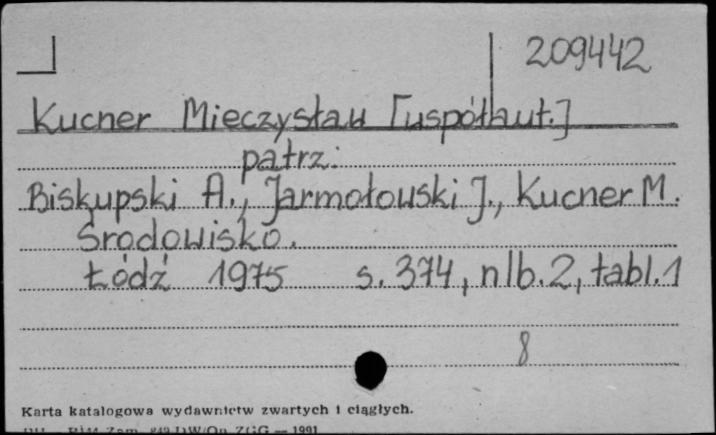 209442
Kucner Mieczysław [współaut.]
patrz:
Biskupski A., Jarmołowski J., Kucner M.
Środowisko.
Łódź 1975 s. 374, nlb. 2, tabl. 1
8
Karta katalogowa wydawnictw zwartych i ciągłych.
ZGG — 1991